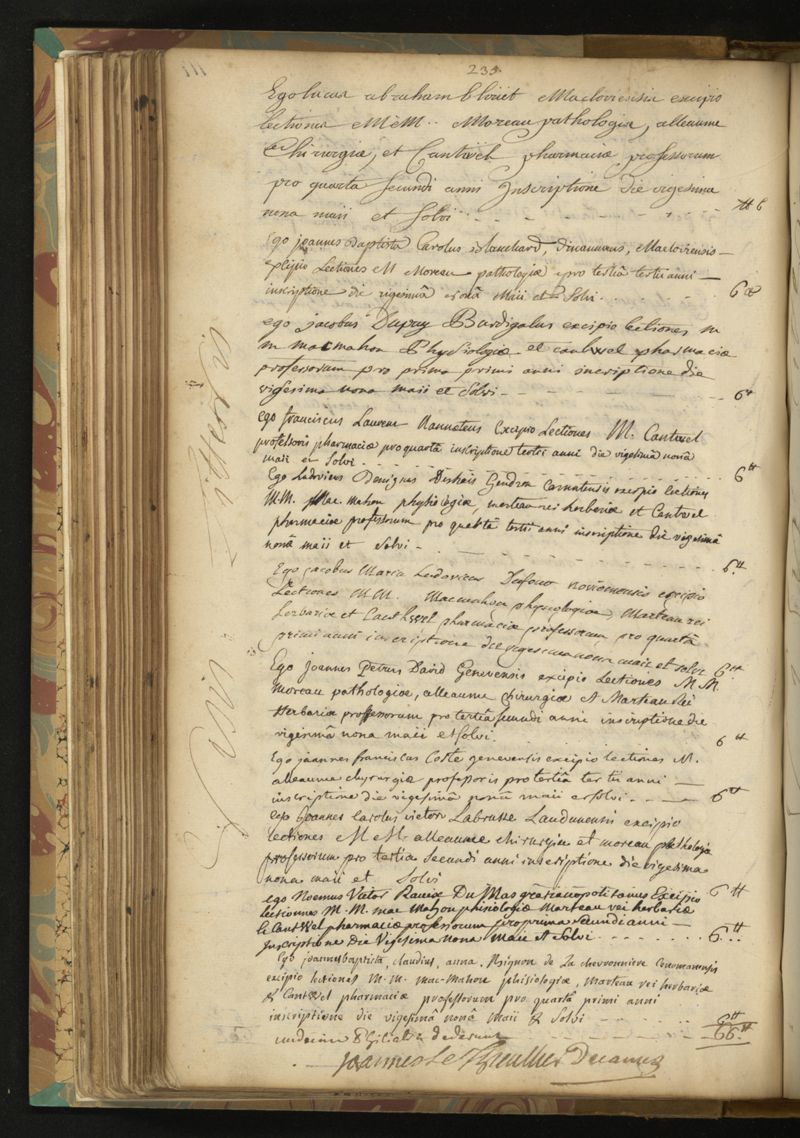 235.
Ego lucas abraham blouet Macloviensis excipio
lectiones M M. Moreau pathologiæ, alleaume
Chirurgiæ, et Cantwel pharmaciæ professorum
pro quarta secundi anni Inscriptione die vigesima
nona maii et Solvi ₶ 6
Ego joannes Baptista Carolus Blanchard, Dinannæus, Macloviensis
excipio Lectiones M Moreau pathologiæ pro tertiâ tertii anni
inscriptione die vigesimâ nonâ Maii et Solvi. 6 ₶
ego jacobus Dupuy Burdigalus excipio lectiones m
m macmahon Physiologiæ et cantwel pharmaciæ
professorum pro prima primi anni inscriptione die
vigesima nona maii et Solvi 6 ₶
ego franciscus Laurent Nanneteus Excipio Lectiones M. Cantwel
professoris pharmaciæ pro quartâ inscriptione tertii anni die vigesimâ nonâ
maii et Solvi 6 ₶
Ego Ludovicus Benignus Deshais Gendron Carnutensis excipio lectiones
M.M. Mac.mahon physiologiæ, marteau rei herbariæ et Cantwel
pharmaciæ professorum pro quartâ tertii anni inscriptione die vigesimâ
nonâ maii et Solvi 6 ₶
Ego jacobus Maria Ludovicus Dufour noviomensis excipio
Lectiones M M. Macmahon physiologiæ, Marteau rei
herbariæ et Canthwel pharmaciæ professorum pro quartâ
primi anni inscriptione die vigesima nona maii et solvi 6 ₶
Ego Joannes Petrus David Genevensis excipio Lectiones M.M.
moreau pathologiæ, alleaume chirurgiæ et Marteau Rei
Herbariæ professorum pro tertiâ secundi anni inscriptione die
vigesimâ nona maii et Solvi. 6 ₶
Ego joannes franciscus Coste genevensis excipio lectiones M.
alleaume chyrurgiæ professoris pro tertiâ tertii anni
inscriptione die vigesimâ nonâ maii et solvi 6 ₶
ego joannes Carolus victor Labrusse Laudunensis excipio
lectiones M M. alleaume chirurgiæ et moreau pathologiæ
professorum pro tertia secundi anni inscriptione die vigesima
nona maii et Solvi 6 ₶
ego Noemus Victor Du Mas gratianopolitanus Excipio
lectiones M. M. mac Mahon phisiologiæ Marteau rei herbariæ
et Cantwel pharmaciæ professorum pro prima secundi anni
Inscriptione Die Vigesima Nona Maii et Solvi 6 ₶
Ego joannes baptista, claudius, anna, Rignon de La chevronniere Cenomanensis
excipio lectiones M.M. mac-Mahon phisiologiæ, Marteau rei herbariæ
& Cantwel pharmaciæ professorum pro quartâ primi anni
inscriptione die vigesimâ nonâ Maii & Solvi 6 ₶
undecim dederunt 66 ₶
joannes Le Thieullier Decanus